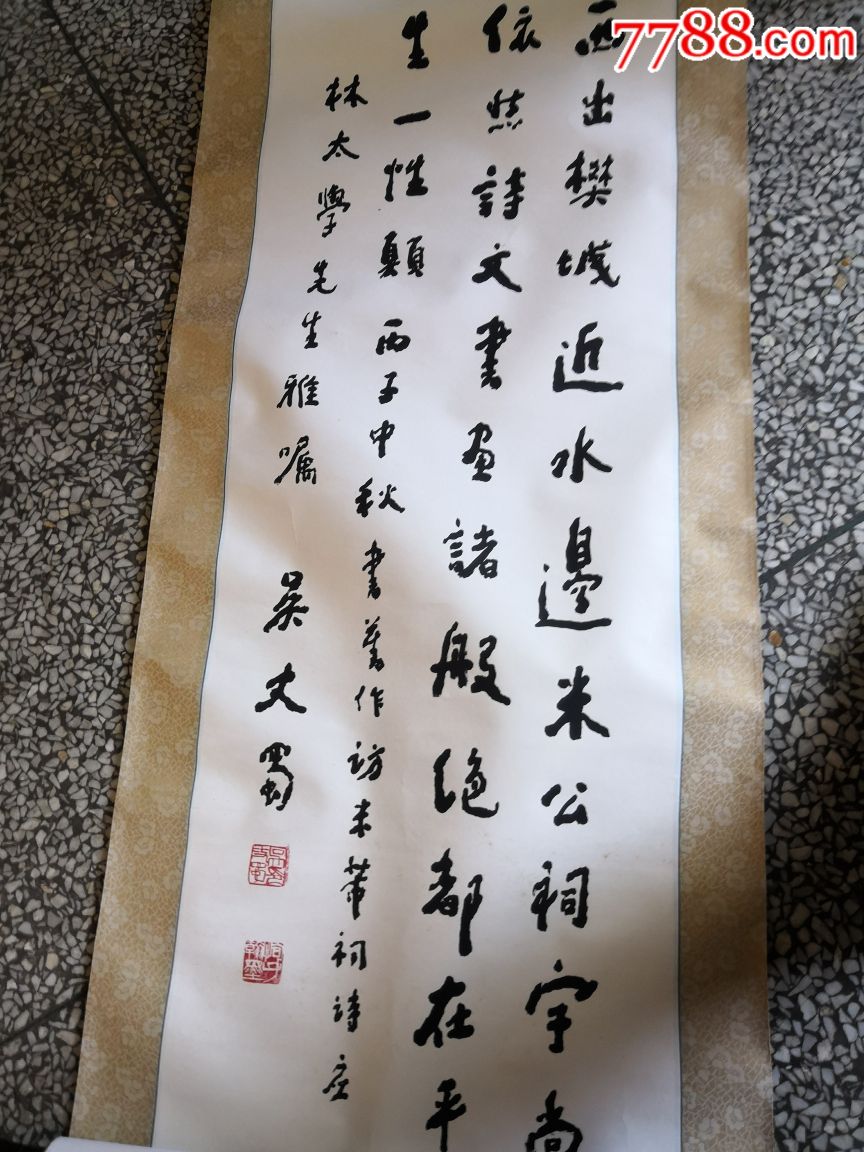 7788.com
西出樊城近水邊米公祠宇尚
依然詩文書畫諸般絕都在平
生一性顛丙子中秋書舊作訪米芾祠詩应
林太學先生雅嘱
吴丈蜀